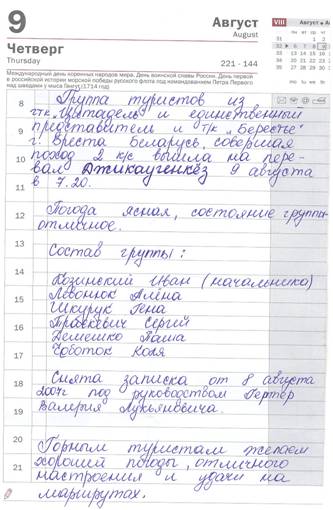 9
Август
August
VIII
Август
Четверг
Thursday
221 - 144
31
32
6
7
8
9
33
34
35
Международный день коренных народов мира. День воинской славы России. День первой
в российской истории морской победы русского флота под командованием Петра Первого
над шведами у мыса Гангут (1714 год)
пн вт ср чт
8 Группа туристов из
гтк „Цитадель" и единственный
9 представителем и т/к „Берестье"
г. Бреста Беларусь, совершая
10 поход 2 к/с вышла на пере-
вал Атикаученкёз 9 августа
11 в 7.20.
12 Погода ясная, состояние группы
отличное.
13 Состав группы:
14 Козинский Иван (начальника)
15 Левонюк Алина
Шкурук Гена
16 Правкевич Сергий
Демешко Паша
17 Чоботок Коля
18 Снята записка от 8 августа
2007г под руководством Гертер
19 Валерия Лукьяновича.
20 Горным туристам желаем
21 хорошей погоды, отличного
настроения и удачи на
маршрутах.